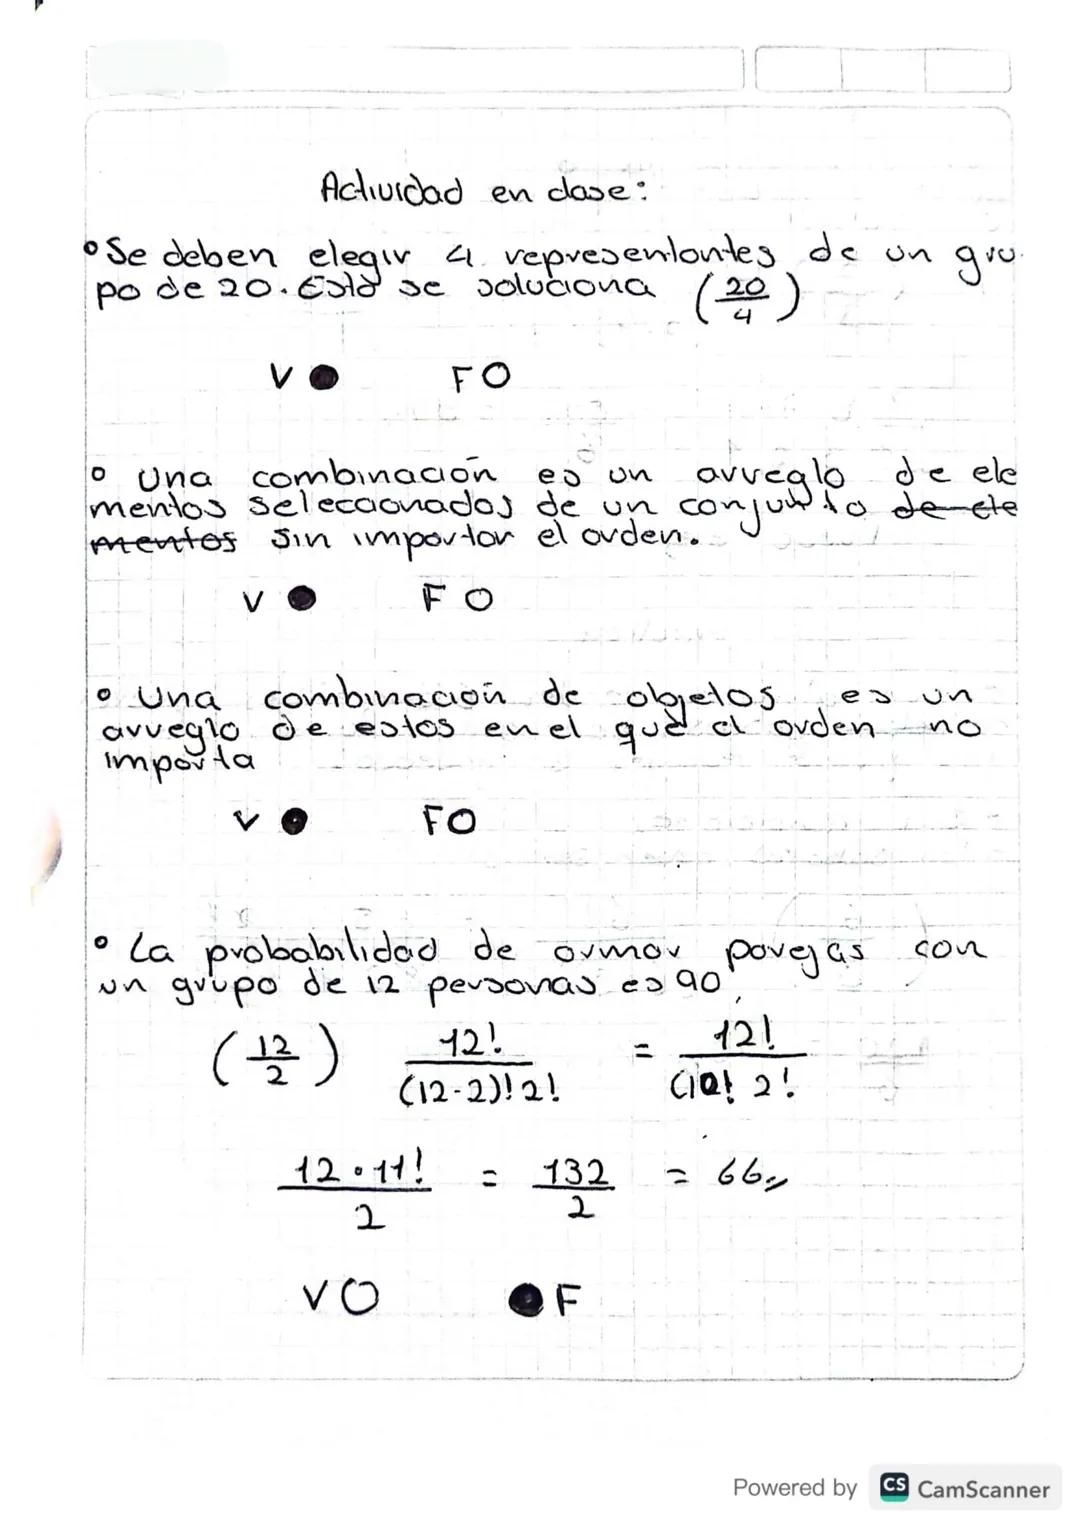 Actividad en clase:
° Se deben elegir 4 representantes de un gru-
po de 20. Esto se soluciona (20/4)
V ● F O
° Una combinación es un arreglo de ele
mentos seleccionados de un conjunto ~~de ele~~
~~mentos~~ sin importar el orden.
V ● F O
° Una combinación de objetos es un
arreglo de estos en el que el orden no
importa
V ● F O
° La probabilidad de armar parejas con
un grupo de 12 personas es 90
(12/2) 12!/(12-2)!2! = 12!/(10! 2!
12·11!/2 = 132/2 = 66,,
V O ● F
Powered by CS CamScanner